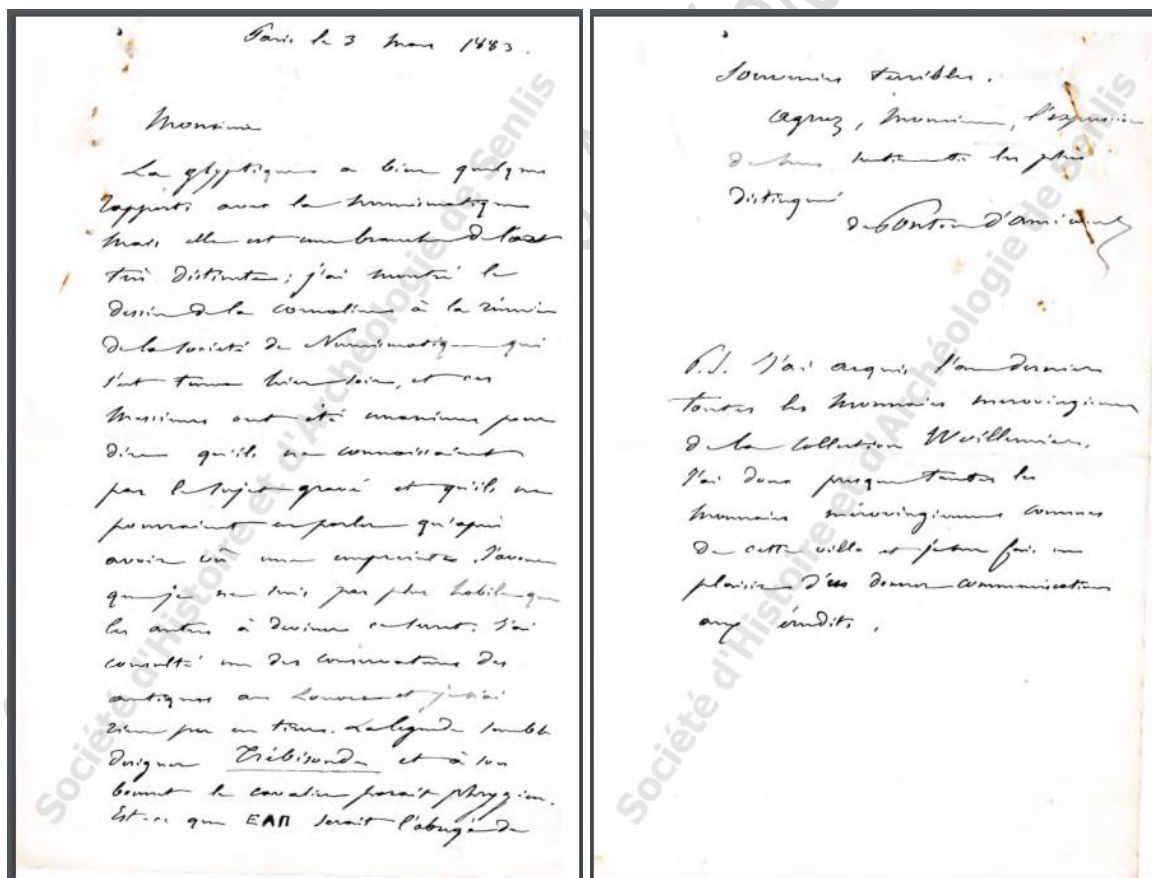 Paris le 3 Mars 1883.
Monsieur
La glyptique a bien quelques
rapports avec la numismatique
mais elle est une branche de l'art
très distincte ; j'ai montré le
dessin de la cornaline à la réunion
de la société de Numismatique qui
s'est tenue hier soir, et ces
Messieurs ont été unanimes pour
dire qu'ils ne connaissaient
pas le sujet gravé et qu'ils ne
pourraient en parler qu'après
avoir vû une empreinte. J'avoue
que je ne suis pas plus habile que
les autres à deviner ce J'ai
consulté un des conservateurs des
antiques au Louvre et je n'ai
rien pu en tirer. La légende semble
designer Trébisonde et à son
bonnet le cavalier parait phrygien.
Est-ce que ΕΛΠ serait l'abrégé de
souvenirs terribles.
Agréez, Monsieur, l'expression
de mes sentiments les plus
distingués
de Ponton d'Amécourt
P.S. J'ai acquis l'an dernier
toutes les monnaies merovingiennes
de la collection
J'ai donc presque toutes les
monnaies mérovingiennes connues
de cette ville et je me fais un
plaisir d'en donner communication
aux érudits.
Société d'Histoire et d'Archéologie de Senlis
Société d'Histoire et d'Archéologie de Senlis